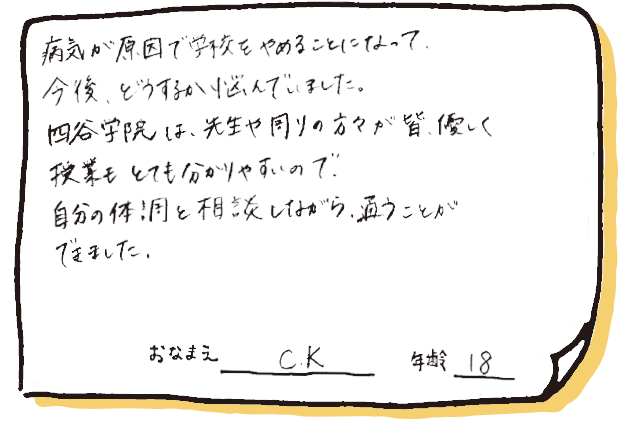 病気が原因で学校をやめることになって、
今後、どうするか悩んでいました。
四谷学院は、先生や周りの方々が皆、優しく
授業もとても分かりやすいので、
自分の体調と相談しながら、通うことが
できました。
おなまえ C.K 年齢 18